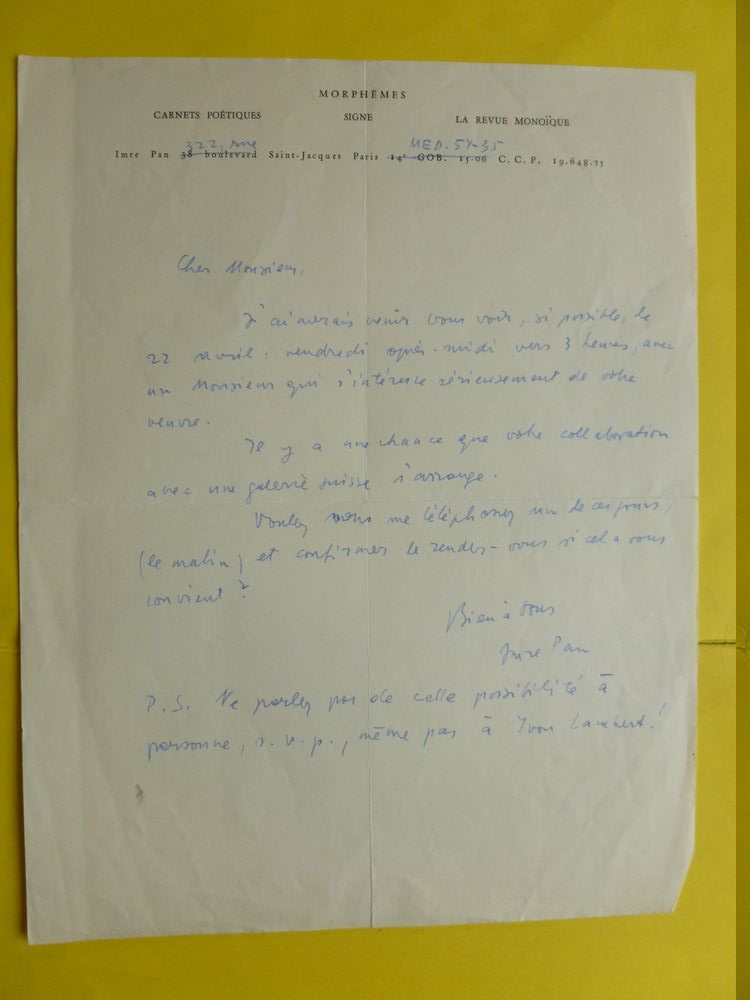 MORPHÈMES
CARNETS POÉTIQUES SIGNE LA REVUE MONOÏQUE
322, rue MED. 54-35
Imre Pan 38 boulevard Saint-Jacques Paris 14e GOB. 15-06 C. C. P. 19.648-75
Cher Monsieur,
J'aimerais venir vous voir, si possible, le
22 avril, vendredi après-midi vers 3 heures, avec
un Monsieur qui s'intéresse sérieusement de votre
oeuvre.
Il y a une chance que votre collaboration
avec une galerie suisse s'arrange.
Voulez vous me téléphoner un de ces jours,
(le matin) et confirmer le rendez-vous si cela vous
convient ?
Bien à vous
Imre Pan
P. S. Ne parlez pas de cette possibilité à
personne, s. v. p., même pas à Yvon Lambert !